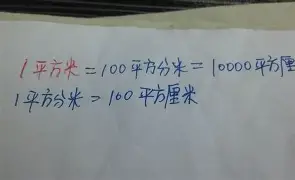 1平方米=100平方分米=10000平方厘
1平方分米=100平方厘米